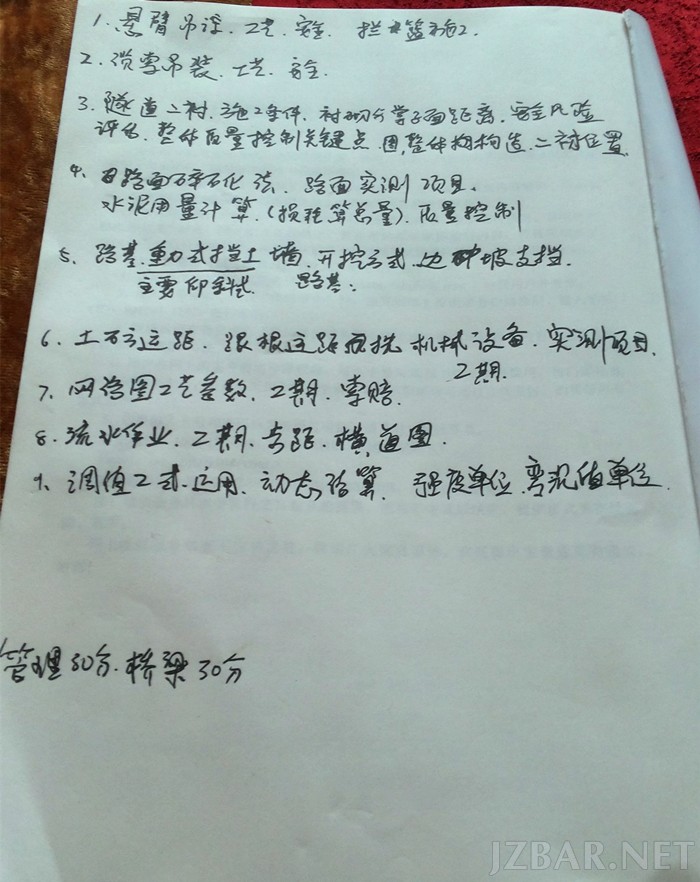 1. 悬臂吊 工艺. 安全. 篮施工.
2. 缆索吊装. 工艺. 安全.
3. 隧道二衬. 施工条件. 衬砌与掌子面距离. 安全风险
评估. 整体质量控制关键点. 围 整体 构造. 二衬位置.
4. 路面碎石化法. 路面实测项目.
水泥用量计算. (损耗算总量). 质量控制
5. 路基. 重力式挡土墙. 开挖方式. 边坡支挡.
主要仰斜式. 路基:
6. 土石方运距. 根 运距 机械设备. 实测项目.
工期.
7. 网络图工艺参数. 工期. 索赔.
8. 流水作业. 工期. 步距. 横道图.
9. 调值公式. 运用. 动态结算. 强度单位. 弯沉值单位.
管理30分. 桥梁30分
JZBAR.NET